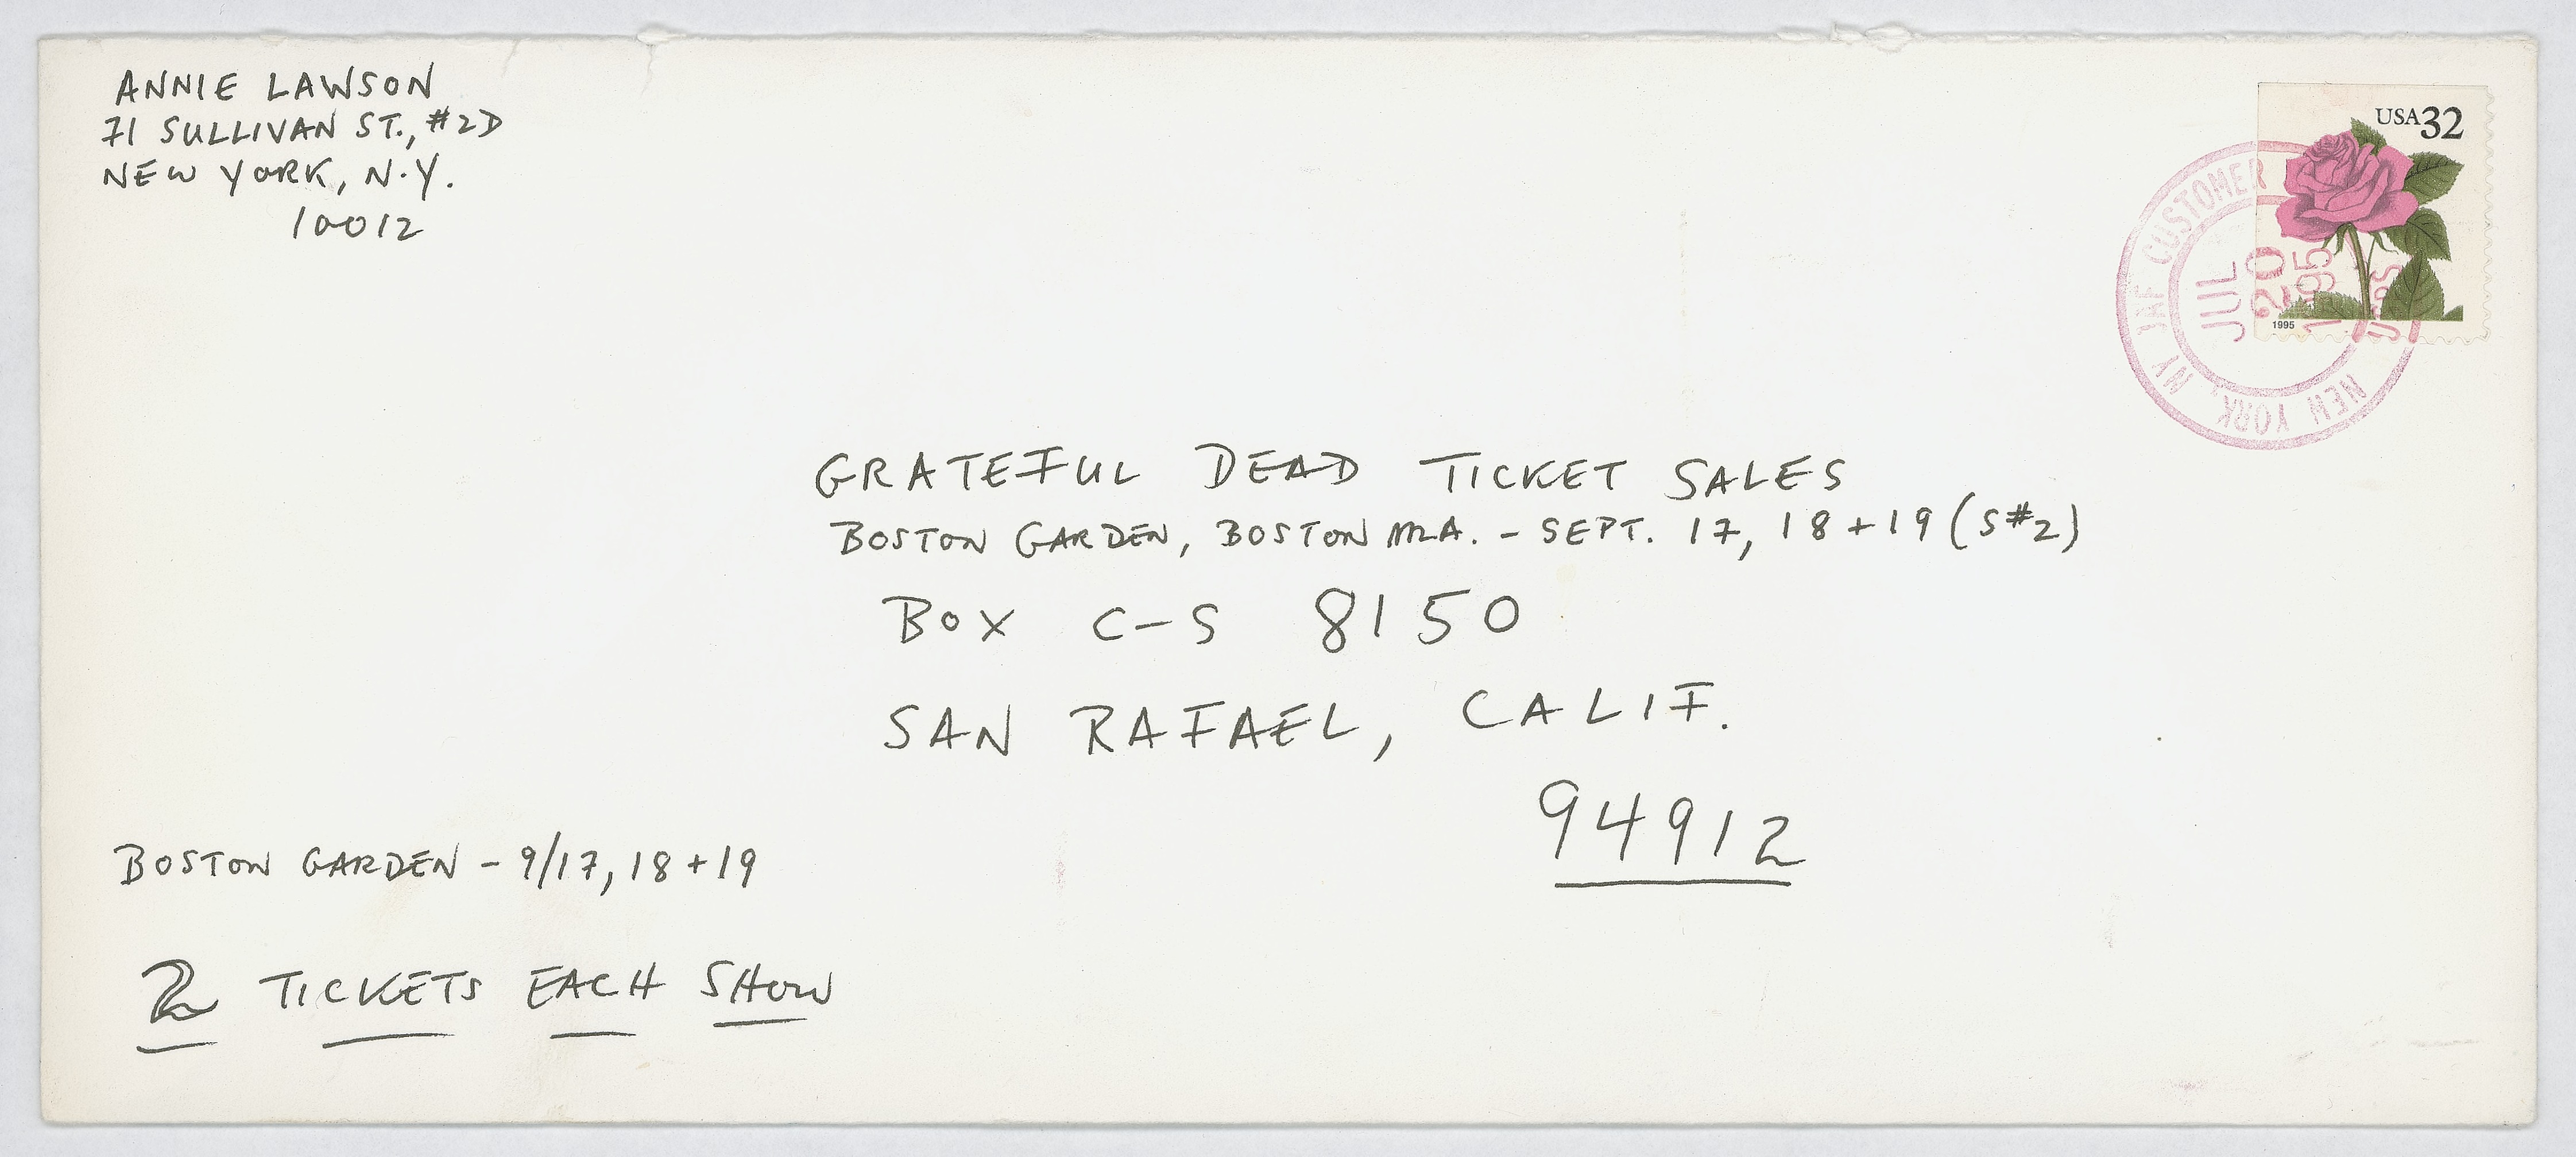 ANNIE LAWSON
71 SULLIVAN ST., #2D
NEW YORK, N.Y.
10012
USA 32
1995
NEW YORK, NY JAF CUSTOMER
JUL
20
1995
USPS
GRATEFUL DEAD TICKET SALES
BOSTON GARDEN, BOSTON MA. - SEPT. 17, 18 + 19 (S#2)
BOX C-S 8150
SAN RAFAEL, CALIF.
94912
BOSTON GARDEN - 9/17, 18 + 19
2 TICKETS EACH SHOW